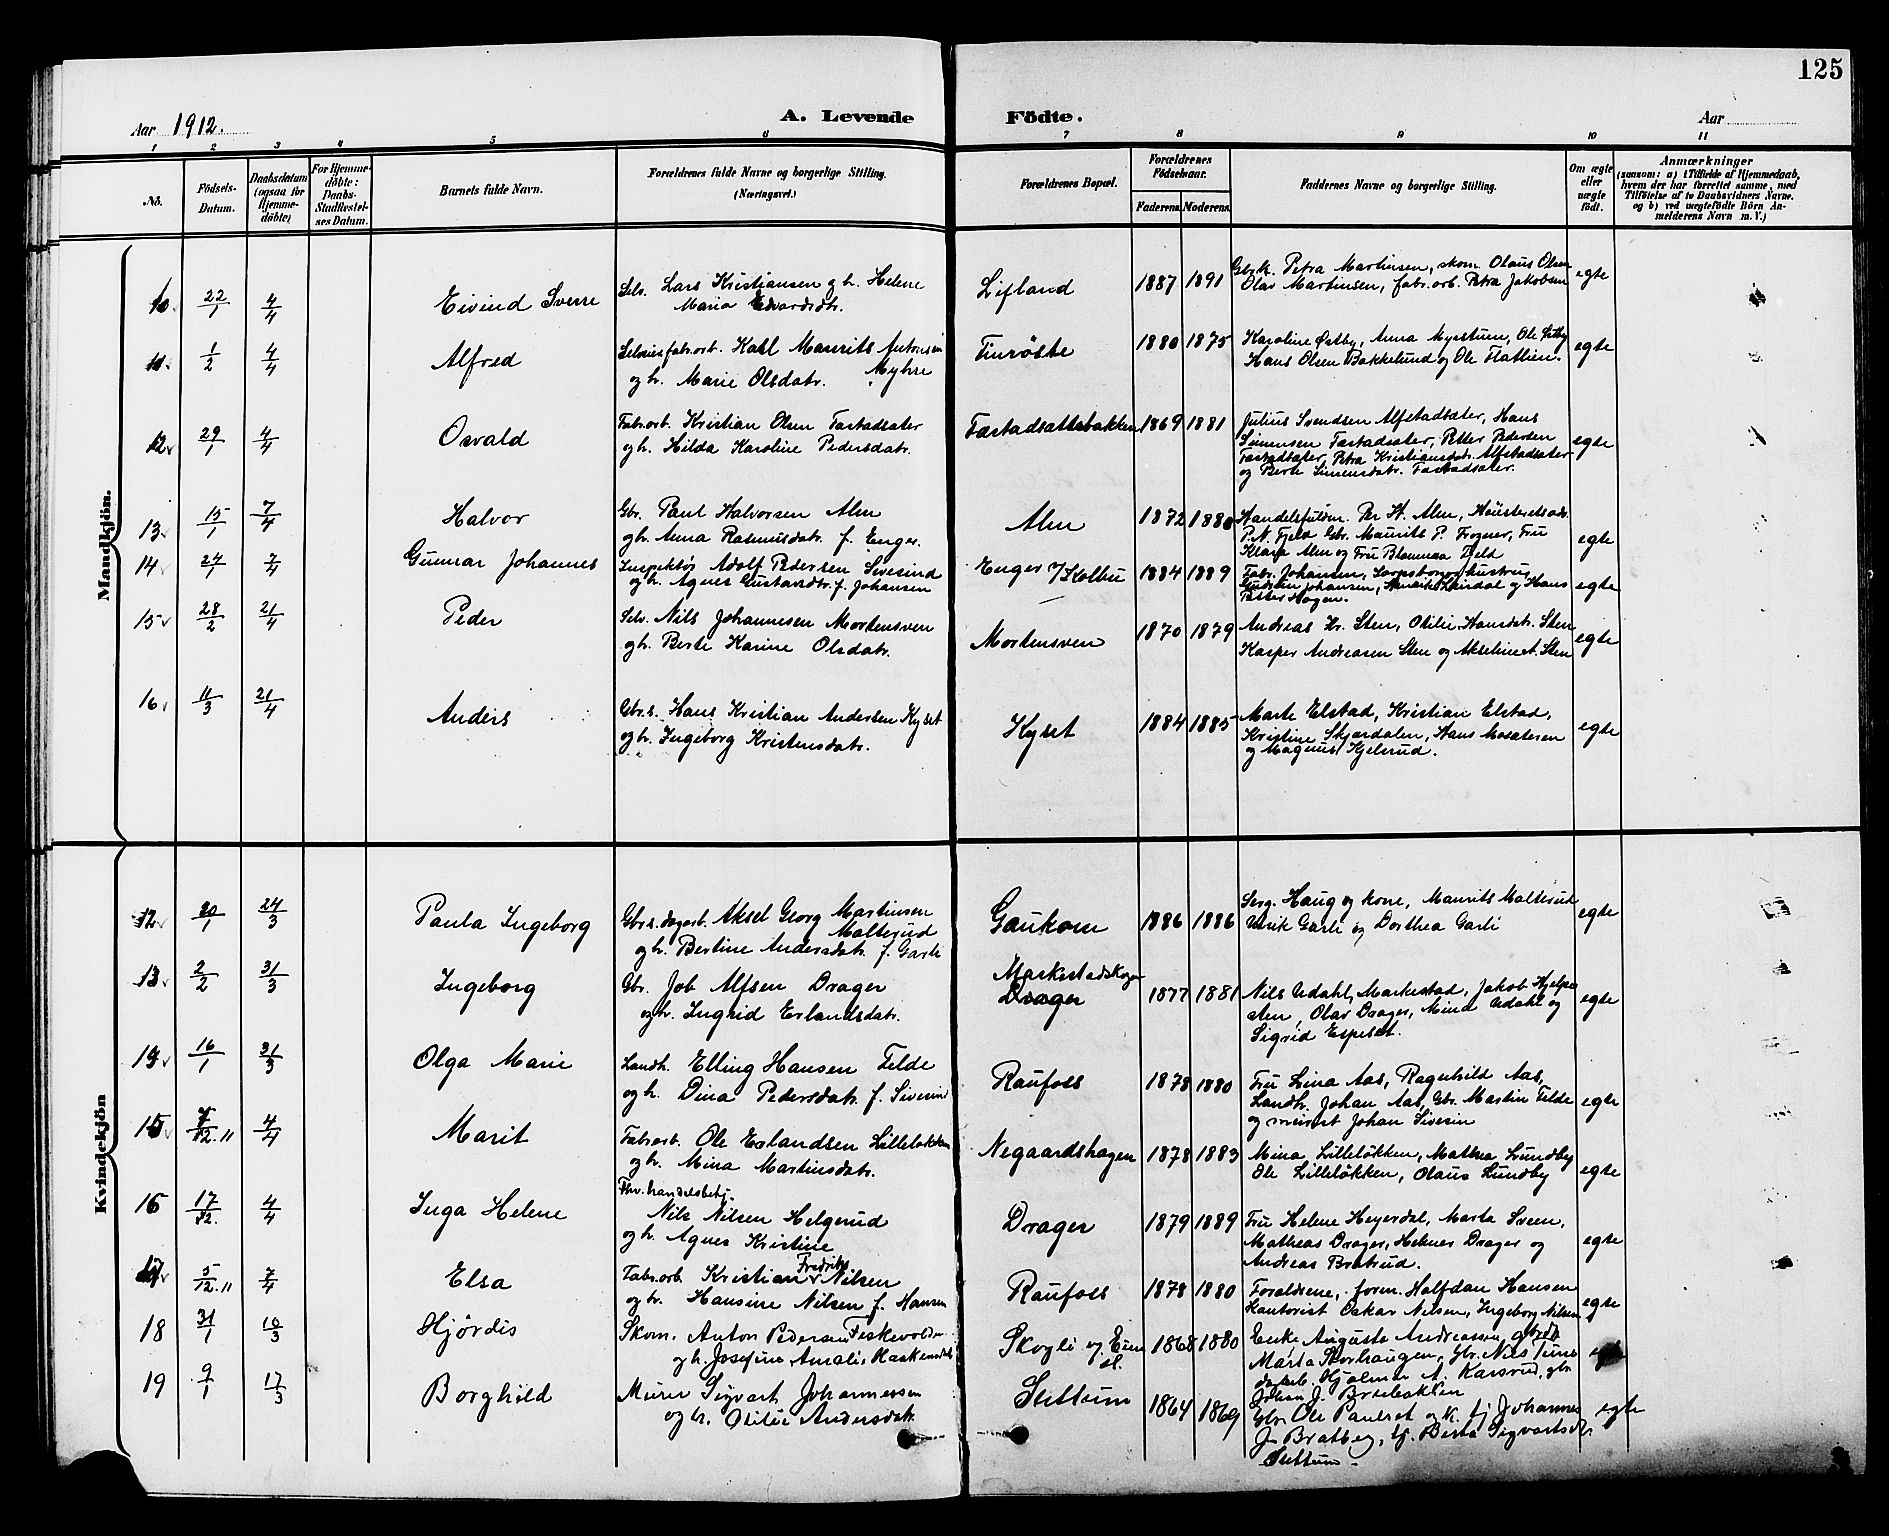 125
Aar 1912.
A. Levende Födte.
Aar
1 2 3 4 5 6 7 8 9 10 11
No.
Födsels-Datum.
Daabsdatum (ogsaa for Hjemmedöbte)
For Hjemmedöbte: Daabs-Stadfæstelses Datum.
Barnets fulde Navn.
Forældrenes fulde Navne og borgerlige Stilling. (Næringsvei.)
Forældrenes Bopæl.
Forældrenes Födselsaar.
Faderens. Moderens.
Faddernes Navne og borgerlige Stilling.
Om ægte eller uægte födt.
Anmærkninger
(saasom: a) i Tilfælde af Hjemmedaab,
hvem der har forrettet samme, med
Tilföielse af to Daabsvidners Navne,
og b) ved uægtefödte Börn An-
melderens Navn m. V.)
Mandkjön.
10 22/1 4/4 Eivind Sverre
Selv. Lars Kristiansen og h. Helene
Maria Edvardsdtr.
Lifland 1887 1891
Gbrk. Petra Martinsen, skom. Olaus Olsen
Olav Martinsen, fabr. arb. Petra Jakobsen
egte
11 1/2 4/4 Alfred
Karl Maurits Antonsen
og h. Marie Olsdatr. Myhre
1880 1875
Karoline Østby, Anna Myrstuen, Ole Østby
Hans Olsen Bakkelund og Ole Flatlien.
egte
12 29/1 4/4 Osvald
Fabr.arb. Kristian Olsen Tastadsæter
og h. Hilda Karoline Pedersdatr.
1869 1881
Julius Svendsen Alfstadsæter, Hans
Simensen Tastadsæter, Petter Pedersen
Tastadsæter, Petra Kristiansdatr. Alfstadsæter
og Berte Simensdatr. Tastadsæter.
egte
13 15/1 7/4 Halvor
Gbr. Paul Halvorsen Alm
og h. Anna Rasmusdatr. f. Enger.
Alm 1872 1880
Per H. Alm,
P. N. Fjeld Gbr. Maurits P. Frogner, Fru
Klara Alm og Fru Fjeld
egte
14 24/1 7/4 Gunnar Johannes
Inspektør Adolf Pedersen Sivesind
og h. Agnes Gustavsdtr. f. Johansen
Enger v/Kolbu 1884 1889
Fabr. Johansen, Sarpsborg, hustru,
Johansen, og Hans
Petter Hagen.
egte
15 28/2 21/4 Peder
Selv. Nils Johannesen Mortensven
og h. Berte Karine Olsdatr.
Mortensven 1870 1879
Andreas Kr. Sten, Otilie Hansdatr. Sten
Kasper Andreasen Sten og Akseline A. Sten
egte
16 11/3 21/4 Anders
Gbr.s. Hans Kristian Andersen Kyset
og h. Ingeborg Kristensdatr.
Kyset 1884 1885
Marte Elstad, Kristian Elstad,
Kristine Skjærdalen, Hans Mosæteren
og Magnus Kjelsrud.
egte
Kvindekjön
12 20/1 24/3 Paula Ingeborg
Gbr.s. dagarb. Aksel Georg Martinsen
Malterud
og h. Bertine Andersdatr. f. Garli
Gaukom 1886 1886
Serg. Haug og kone, Maurits Malterud
Ulrik Garli og Dorthea Garli
egte
13 2/2 31/3 Ingeborg
Gbr. Job Alfsen Drager
og h. Ingrid Erlandsdatr.
Markestadskogen
Drager 1877 1881
Nils Udahl, Markestad, Jakob Hjelpe
sten, Olav Drager, Mina Udahl og
Sigrid Espeset.
egte
14 16/1 31/3 Olga Marie
Landh. Elling Hansen Felde
og h. Dina Pedersdatr. f. Sivesin
Raufoss 1878 1880
Fru Lina Aas, Ragnhild Aas,
Landh. Johan Aas, Gbr. Martin Felde
og Johan Sivesin
egte
15 7/12.11 4/4 Marit
Fabr.arb. Ole Erlandsen Lilleløkken
og h. Mina Martinsdatr.
Negaardshagen 1878 1883
Mina Lilleløkken, Mathea Lundby
Ole Lilleløkken, Olaus Lundby
egte
16 17/12. 4/4 Inga Helene
Fhv. handelsbetj.
Nils Nilsen Helgerud
og h. Agnes Kristine
Drager 1879 1889
Fru Helene Heyerdal, Marta Sveen,
Mathias Drager, Helmer Drager og
Andreas Bratrud.
egte
17 5/12.11 7/4 Elsa
Fabr.arb. Kristian Fredrik Nilsen
og h. Hansine Nilsen f. Hansen
Raufoss 1878 1880
Forældrene, form. Halfdan Hansen
Kontorist Oskar Nilsen, Ingeborg Nilsen
egte
18 31/1 10/3 Hjördis
Skom. Anton Pedersen Fiskevolden
og h. Josefine Amalie Haakensdatr.
Skogli 1868 1880
Enke Augusta Andreassen,
Marta Storhaugen, Gbr. Nils Tune
Hjalmar A. Karsrud, gbr
Johan J. Bræbakken
19 9/1 17/3 Borghild
Murer Sigvart Johannessen
og h. Otilie Andersdatr.
Stettum 1864 1869
Gbr. Ole Paulset og k. Johannes
J. Bratberg, Berta Sigvartsdtr.
Stettum
egte